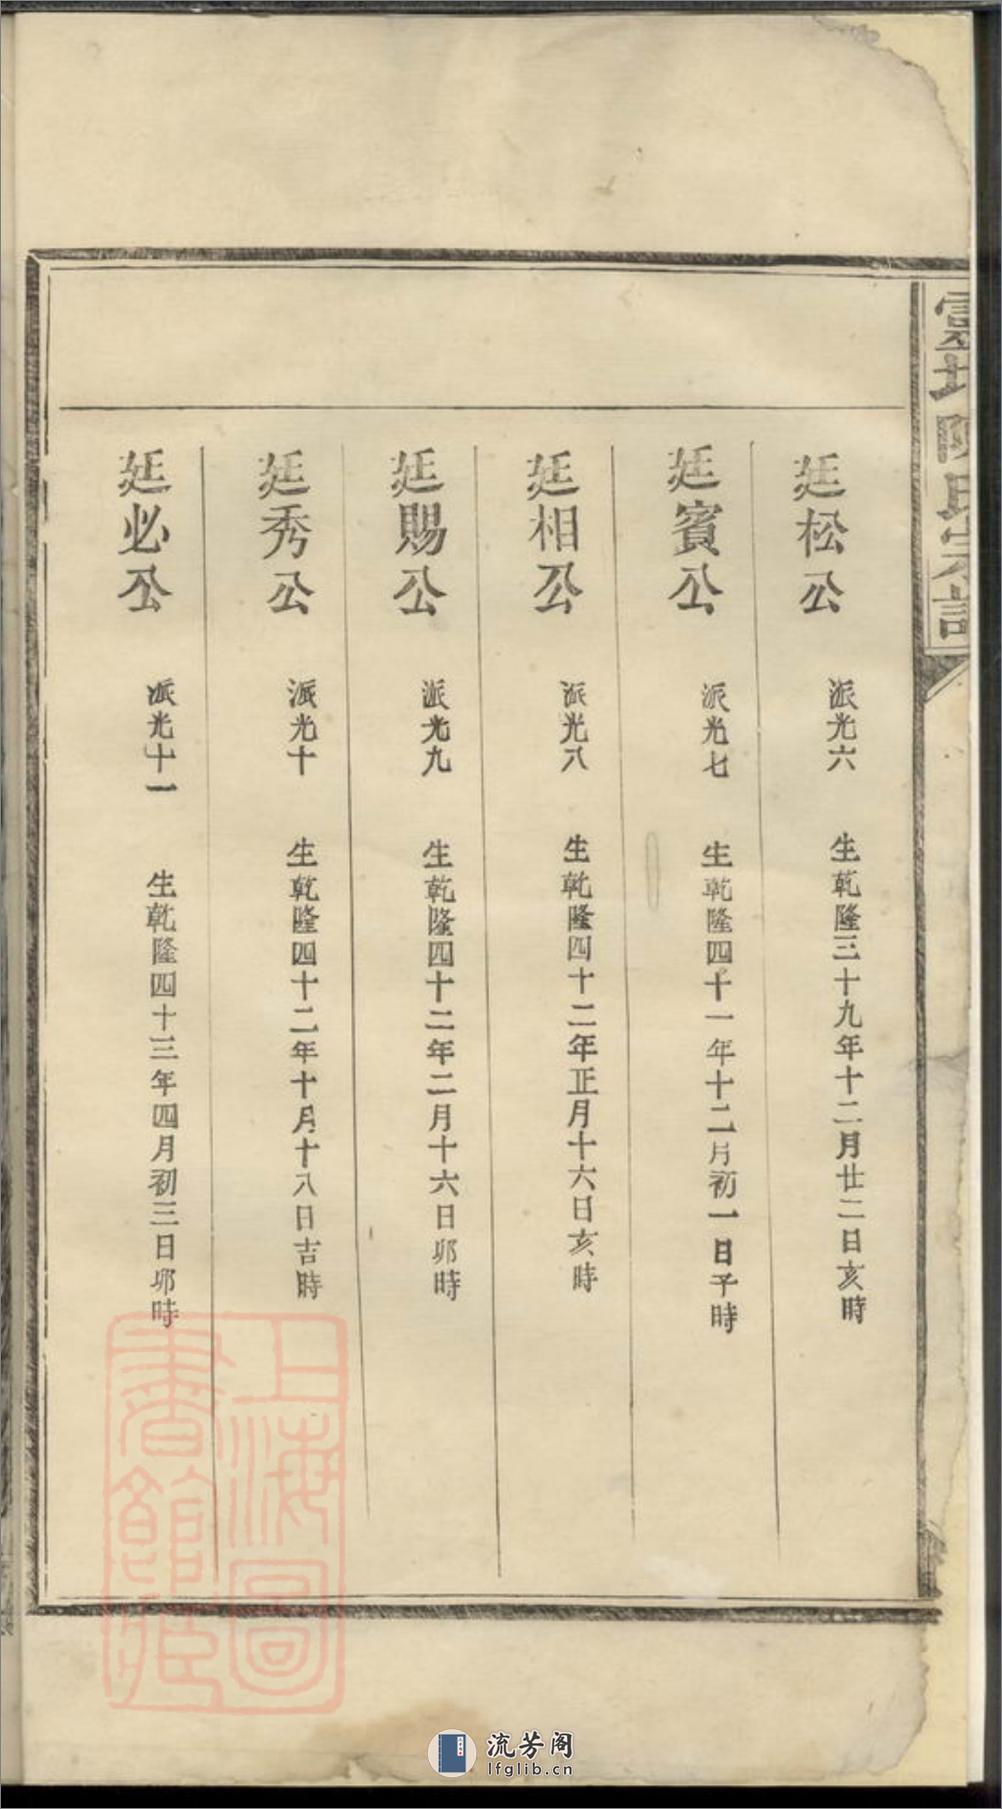 陳氏宗譜
廷松公 派光六 生乾隆三十九年十二月廿二日亥時
廷賓公 派光七 生乾隆四十一年十二月初一日子時
廷相公 派光八 生乾隆四十二年正月十六日亥時
廷賜公 派光九 生乾隆四十二年二月十六日卯時
廷秀公 派光十 生乾隆四十二年十月十八日吉時
廷必公 派光十一 生乾隆四十三年四月初三日卯時
上海圖
書館藏
流芳阁
lfglib.cn